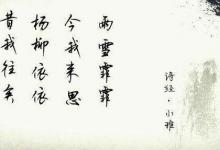 昔我往矣
杨柳依依
今我来思
雨雪霏霏
诗经·小雅